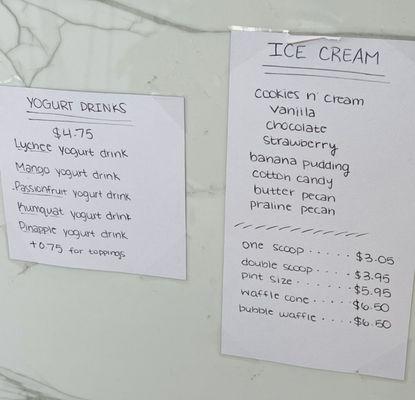 YOGURT DRINKS
$4.75
Lychee yogurt drink
Mango yogurt drink
Passionfruit yogurt drink
Kumquat yogurt drink
Pinapple yogurt drink
+0.75 for toppings
ICE CREAM
cookies n' cream
vanilla
chocolate
strawberry
banana pudding
cotton candy
butter pecan
praline pecan
one scoop ..... $3.05
double scoop .... $3.95
pint size ....... $5.95
waffle cone ..... $6.50
bubble waffle .... $6.50